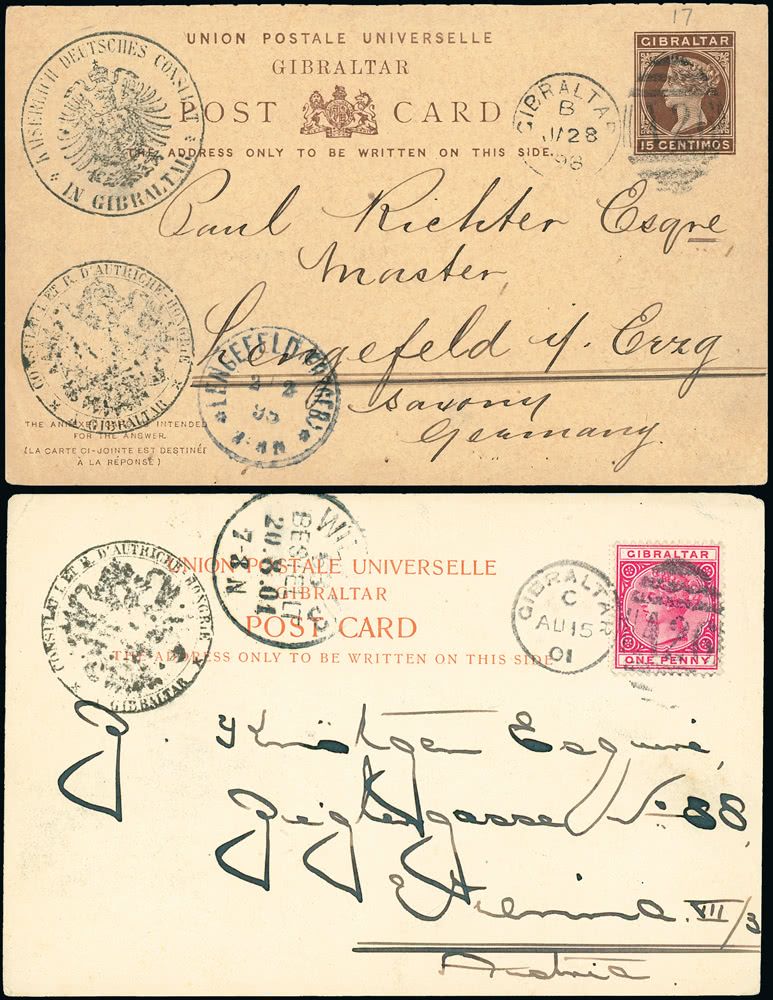 17
UNION POSTALE UNIVERSELLE
GIBRALTAR
POST CARD
THE ADDRESS ONLY TO BE WRITTEN ON THIS SIDE.
GIBRALTAR
15 CENTIMOS
KAISERLICH DEUTSCHES CONSULAT
IN GIBRALTAR
GIBRALTAR
B
28
Paul Richter Esqre
Master
Lengefeld i/. Erzg
Saxony
Germany.
CONSULAT I. ET R. D'AUTRICHE-HONGRIE
GIBRALTAR
LENGEFELD
THE ANNEXED INTENDED
FOR THE ANSWER.
(LA CARTE CI-JOINTE EST DESTINÉE
À LA RÉPONSE)
UNION POSTALE UNIVERSELLE
GIBRALTAR
POST CARD
THE ADDRESS ONLY TO BE WRITTEN ON THIS SIDE
CONSULAT I. ET R. D'AUTRICHE-HONGRIE
GIBRALTAR
BESTELLT
20.8.01
7-8 N
GIBRALTAR
C
AU 15
01
GIBRALTAR
ONE PENNY
Esquire,
Zieglergasse No 88
Vienna VII/3
Austria